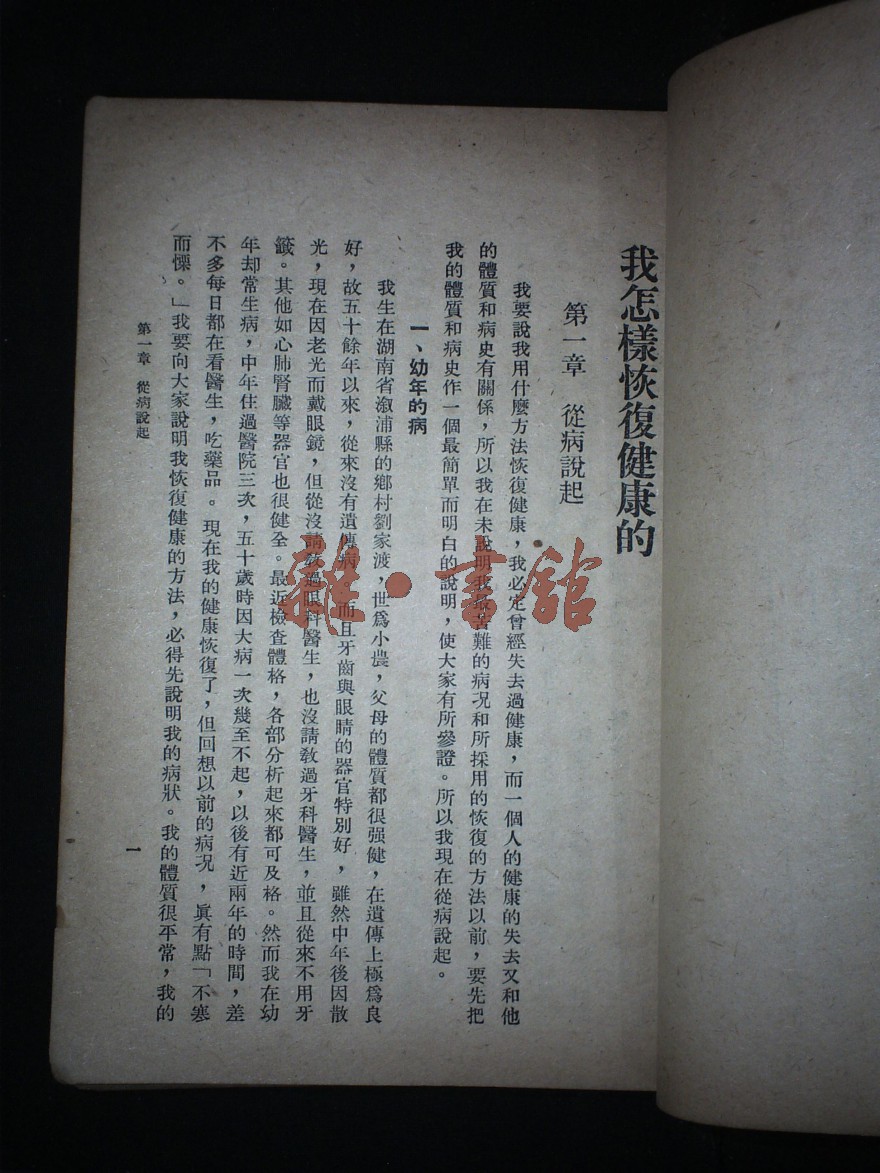 我怎樣恢復健康的
第一章 從病說起
我要說我用什麼方法恢復健康，我必定曾經失去過健康，而一個人的健康的失去又和他
的體質和病史有關係，所以我在未說明我最苦難的病況和所採用的恢復的方法以前，要先把
我的體質和病史作一個最簡單而明白的說明，使大家有所參證。所以我現在從病說起。
一、幼年的病
我生在湖南省溆浦縣的鄉村劉家渡，世爲小農，父母的體質都很强健，在遺傳上極爲良
好，故五十餘年以來，從來沒有遺傳病。而且牙齒與眼睛的器官特別好，雖然中年後因散
光，現在因老光而戴眼鏡，但從沒請教過眼科醫生，也沒請教過牙科醫生，並且從來不用牙
籤。其他如心肺腎臟等器官也很健全。最近檢查體格，各部分析起來都可及格。然而我在幼
年却常生病，中年住過醫院三次，五十歲時因大病一次幾至不起，以後有近兩年的時間，差
不多每日都在看醫生，吃藥品。現在我的健康恢復了，但回想以前的病況，眞有點「不寒
而慄。」我要向大家說明我恢復健康的方法，必得先說明我的病狀。我的體質很平常，我的
第一章 從病說起
一
雜·書館